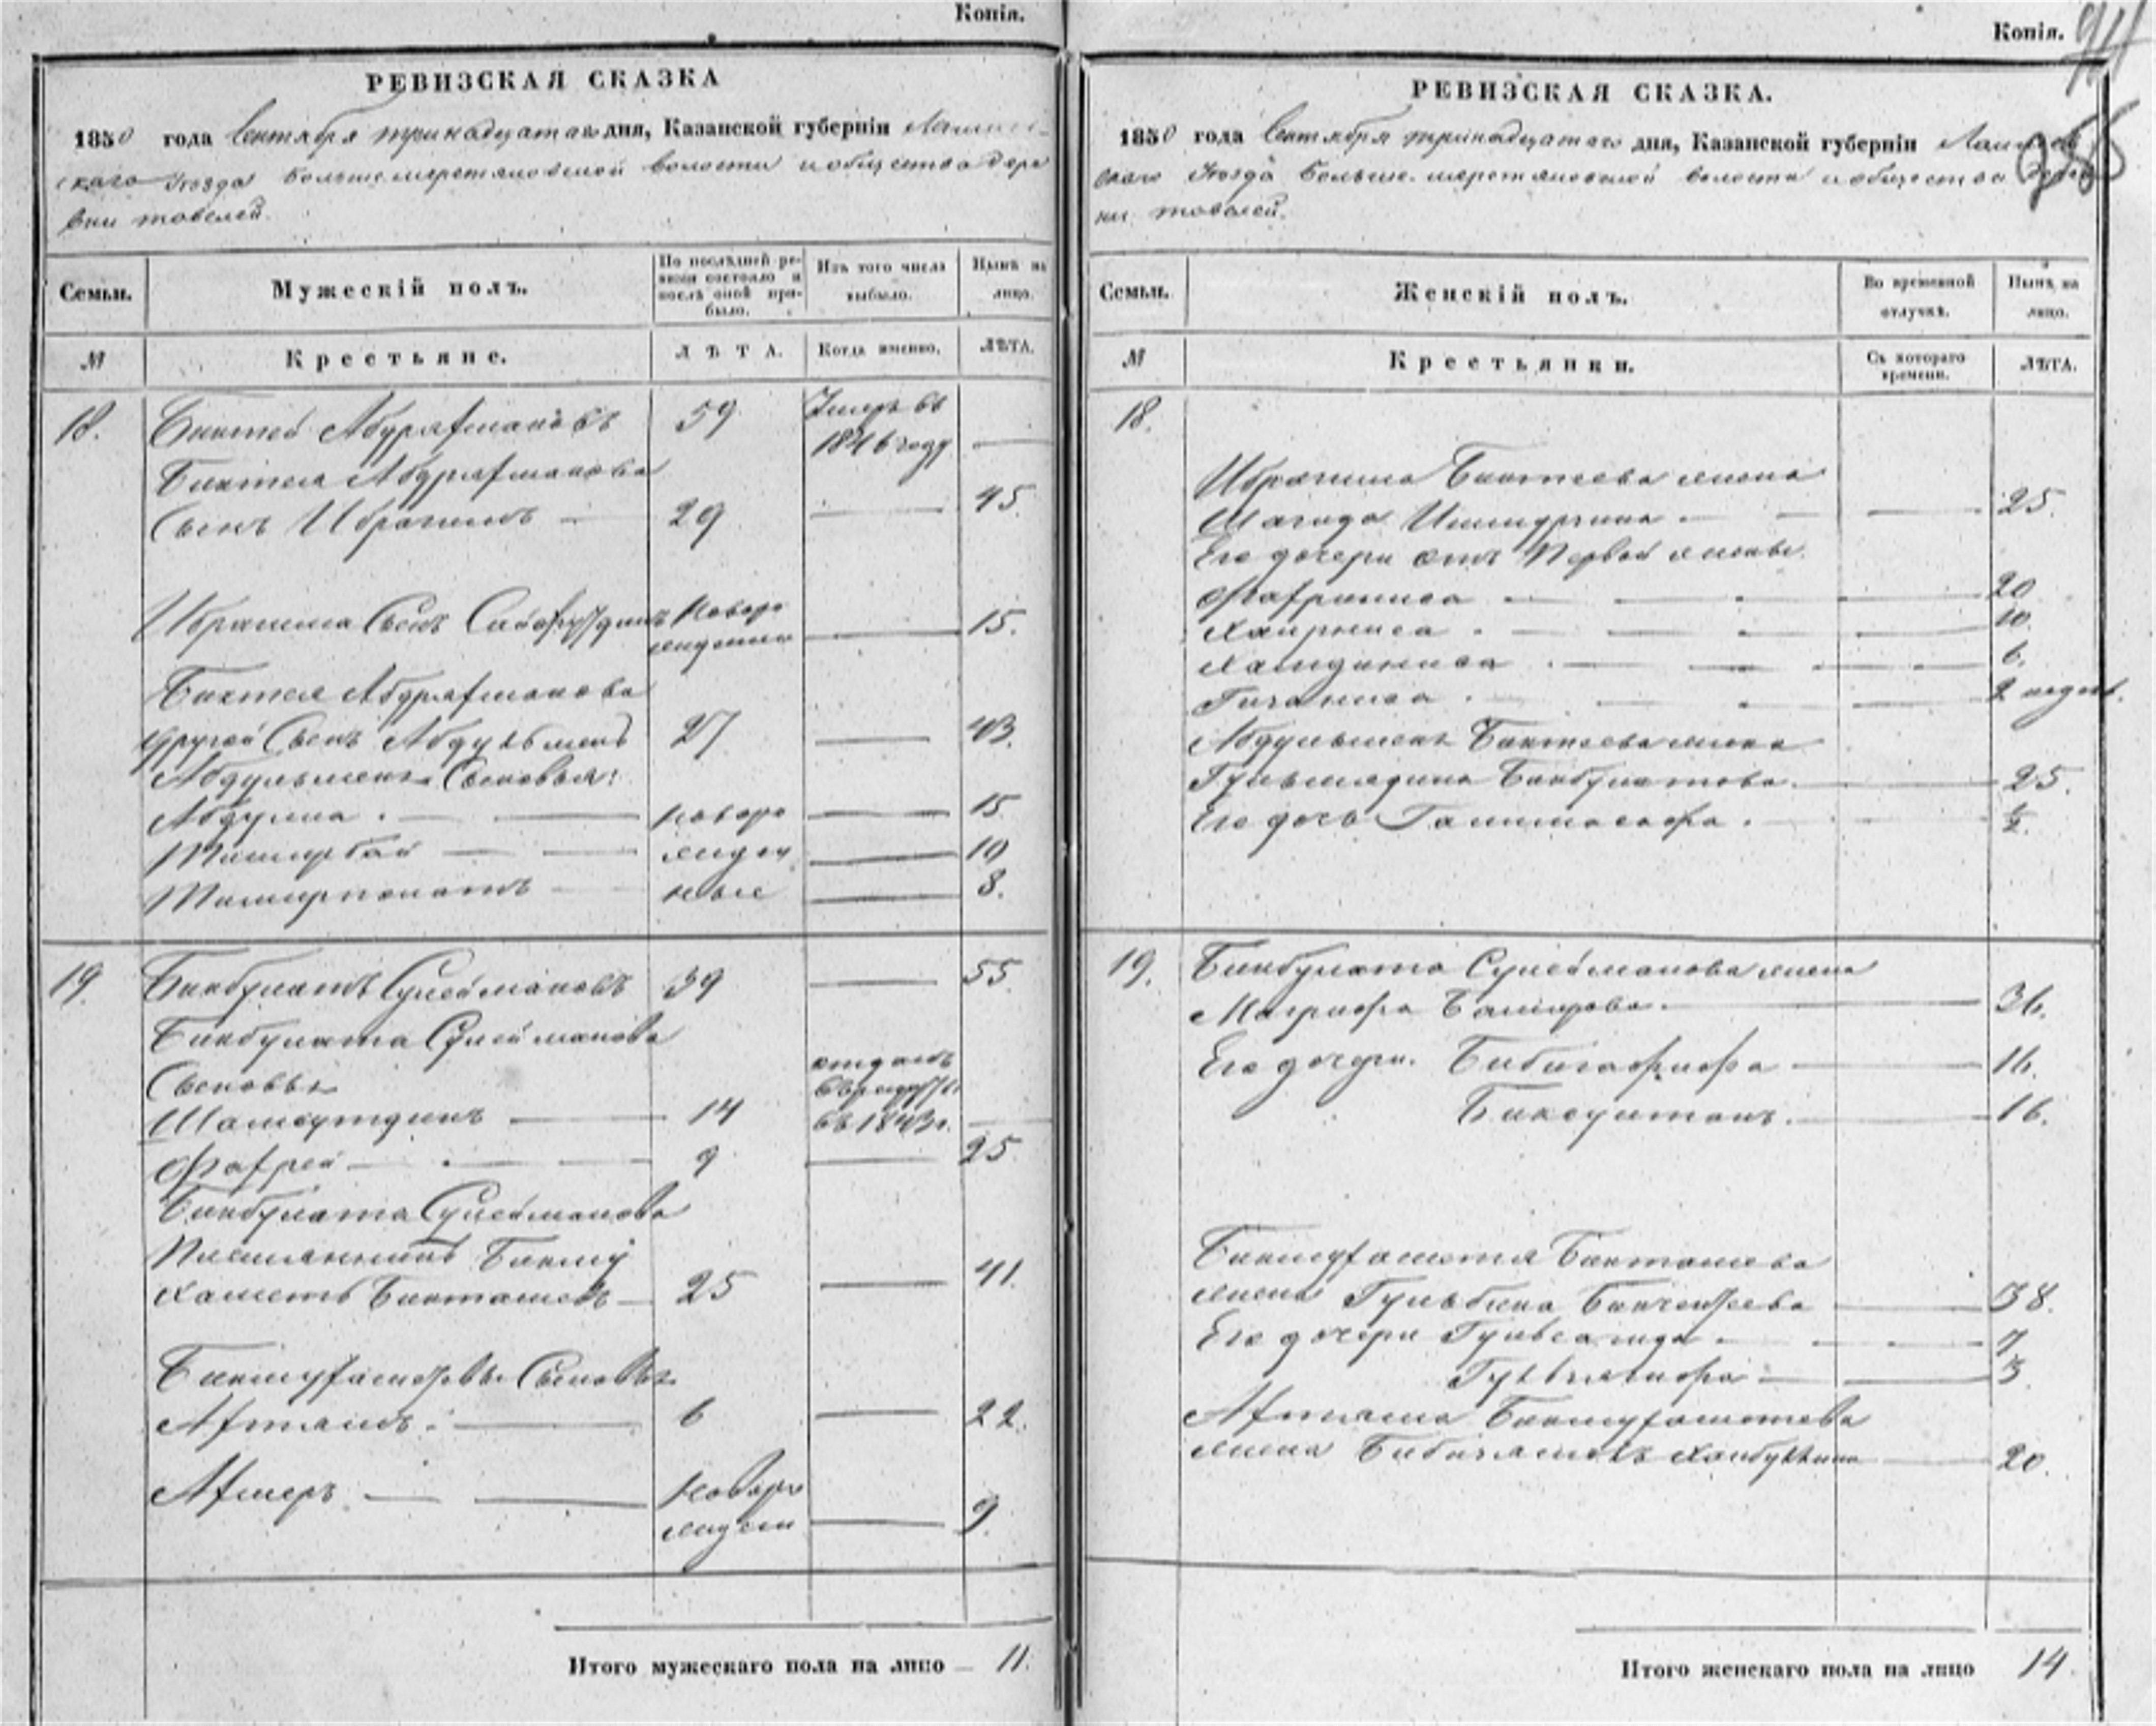 Копія.
РЕВИЗСКАЯ СКАЗКА
1850 года Сентября тринадцатаго дня, Казанской губерніи Лаишев-
скаго уезда больше меретяковской волости и общества дере
вни товелей.
Семьи.
Мужескій полъ.
По послѣдней ре-
визіи состояло и
послѣ оной при-
было.
Изъ того числа
выбыло.
Нынѣ на
лицо.
№
Крестьяне.
ЛѢТА.
Когда именно.
ЛѢТА.
18.
Биктей Абдряхмановъ 59 Умеръ въ
1846 году —
Биктея Абдряхманова
Сынъ Ибрагимъ — 29 — 45.
Ибрагима Сынъ новоро
жденной — 15.
Биктея Абдряхманова
другой Сынъ Абдульменъ 27 — 43.
Абдульмена Сыновья:
Абдулла — новоро — 15
Тимирбай — жден — 10
Тимирпотатъ — ные — 8.
19.
Бикбулатъ Сулеймановъ 39 — 55.
Бикбулата Сулейманова
Сыновья отданъ
в рекруты
Шамсутдинъ — 14 въ 1843 г. —
Фахрей — 9 — 25.
Бикбулата Сулейманова
Племянникъ Бикму
хаметъ Бикташевъ — 25 — 41.
Бикмухаметовы Сыновья
Ахтямъ — 6 — 22.
Ахмеръ — новоро
жден — 9.
Итого мужескаго пола на лицо — 11.
Копія.
РЕВИЗСКАЯ СКАЗКА.
1850 года Сентября тринадцатаго дня, Казанской губерніи Лаишев
скаго уезда больше-меретяковской волости и общества дерев
ни товелей.
Семьи.
Женскій полъ.
Во временной
отлучкѣ.
Нынѣ на
лицо.
№
Крестьянки.
Съ котораго
времени.
ЛѢТА.
18.
Ибрагима Биктеева жена
Шагида — 25.
Его дочери отъ Первой жены
Фахриниса — 20
Хаирниса — 10.
Хамдиниса — 6.
— 2 недел.
Абдульмена Биктеева жена
Бикбулатова — 25.
Его дочь — ½.
19.
Бикбулата Сулейманова жена
Магрифа Баширова — 36.
Его дочери. — 16.
— 16.
Бикмухаметя Бикташева
жена Гульбика — 38.
Его дочери Гульсагида — 7
— 3
Ахтяма Бикмухаметева
жена — 20.
Итого женскаго пола на лицо 14